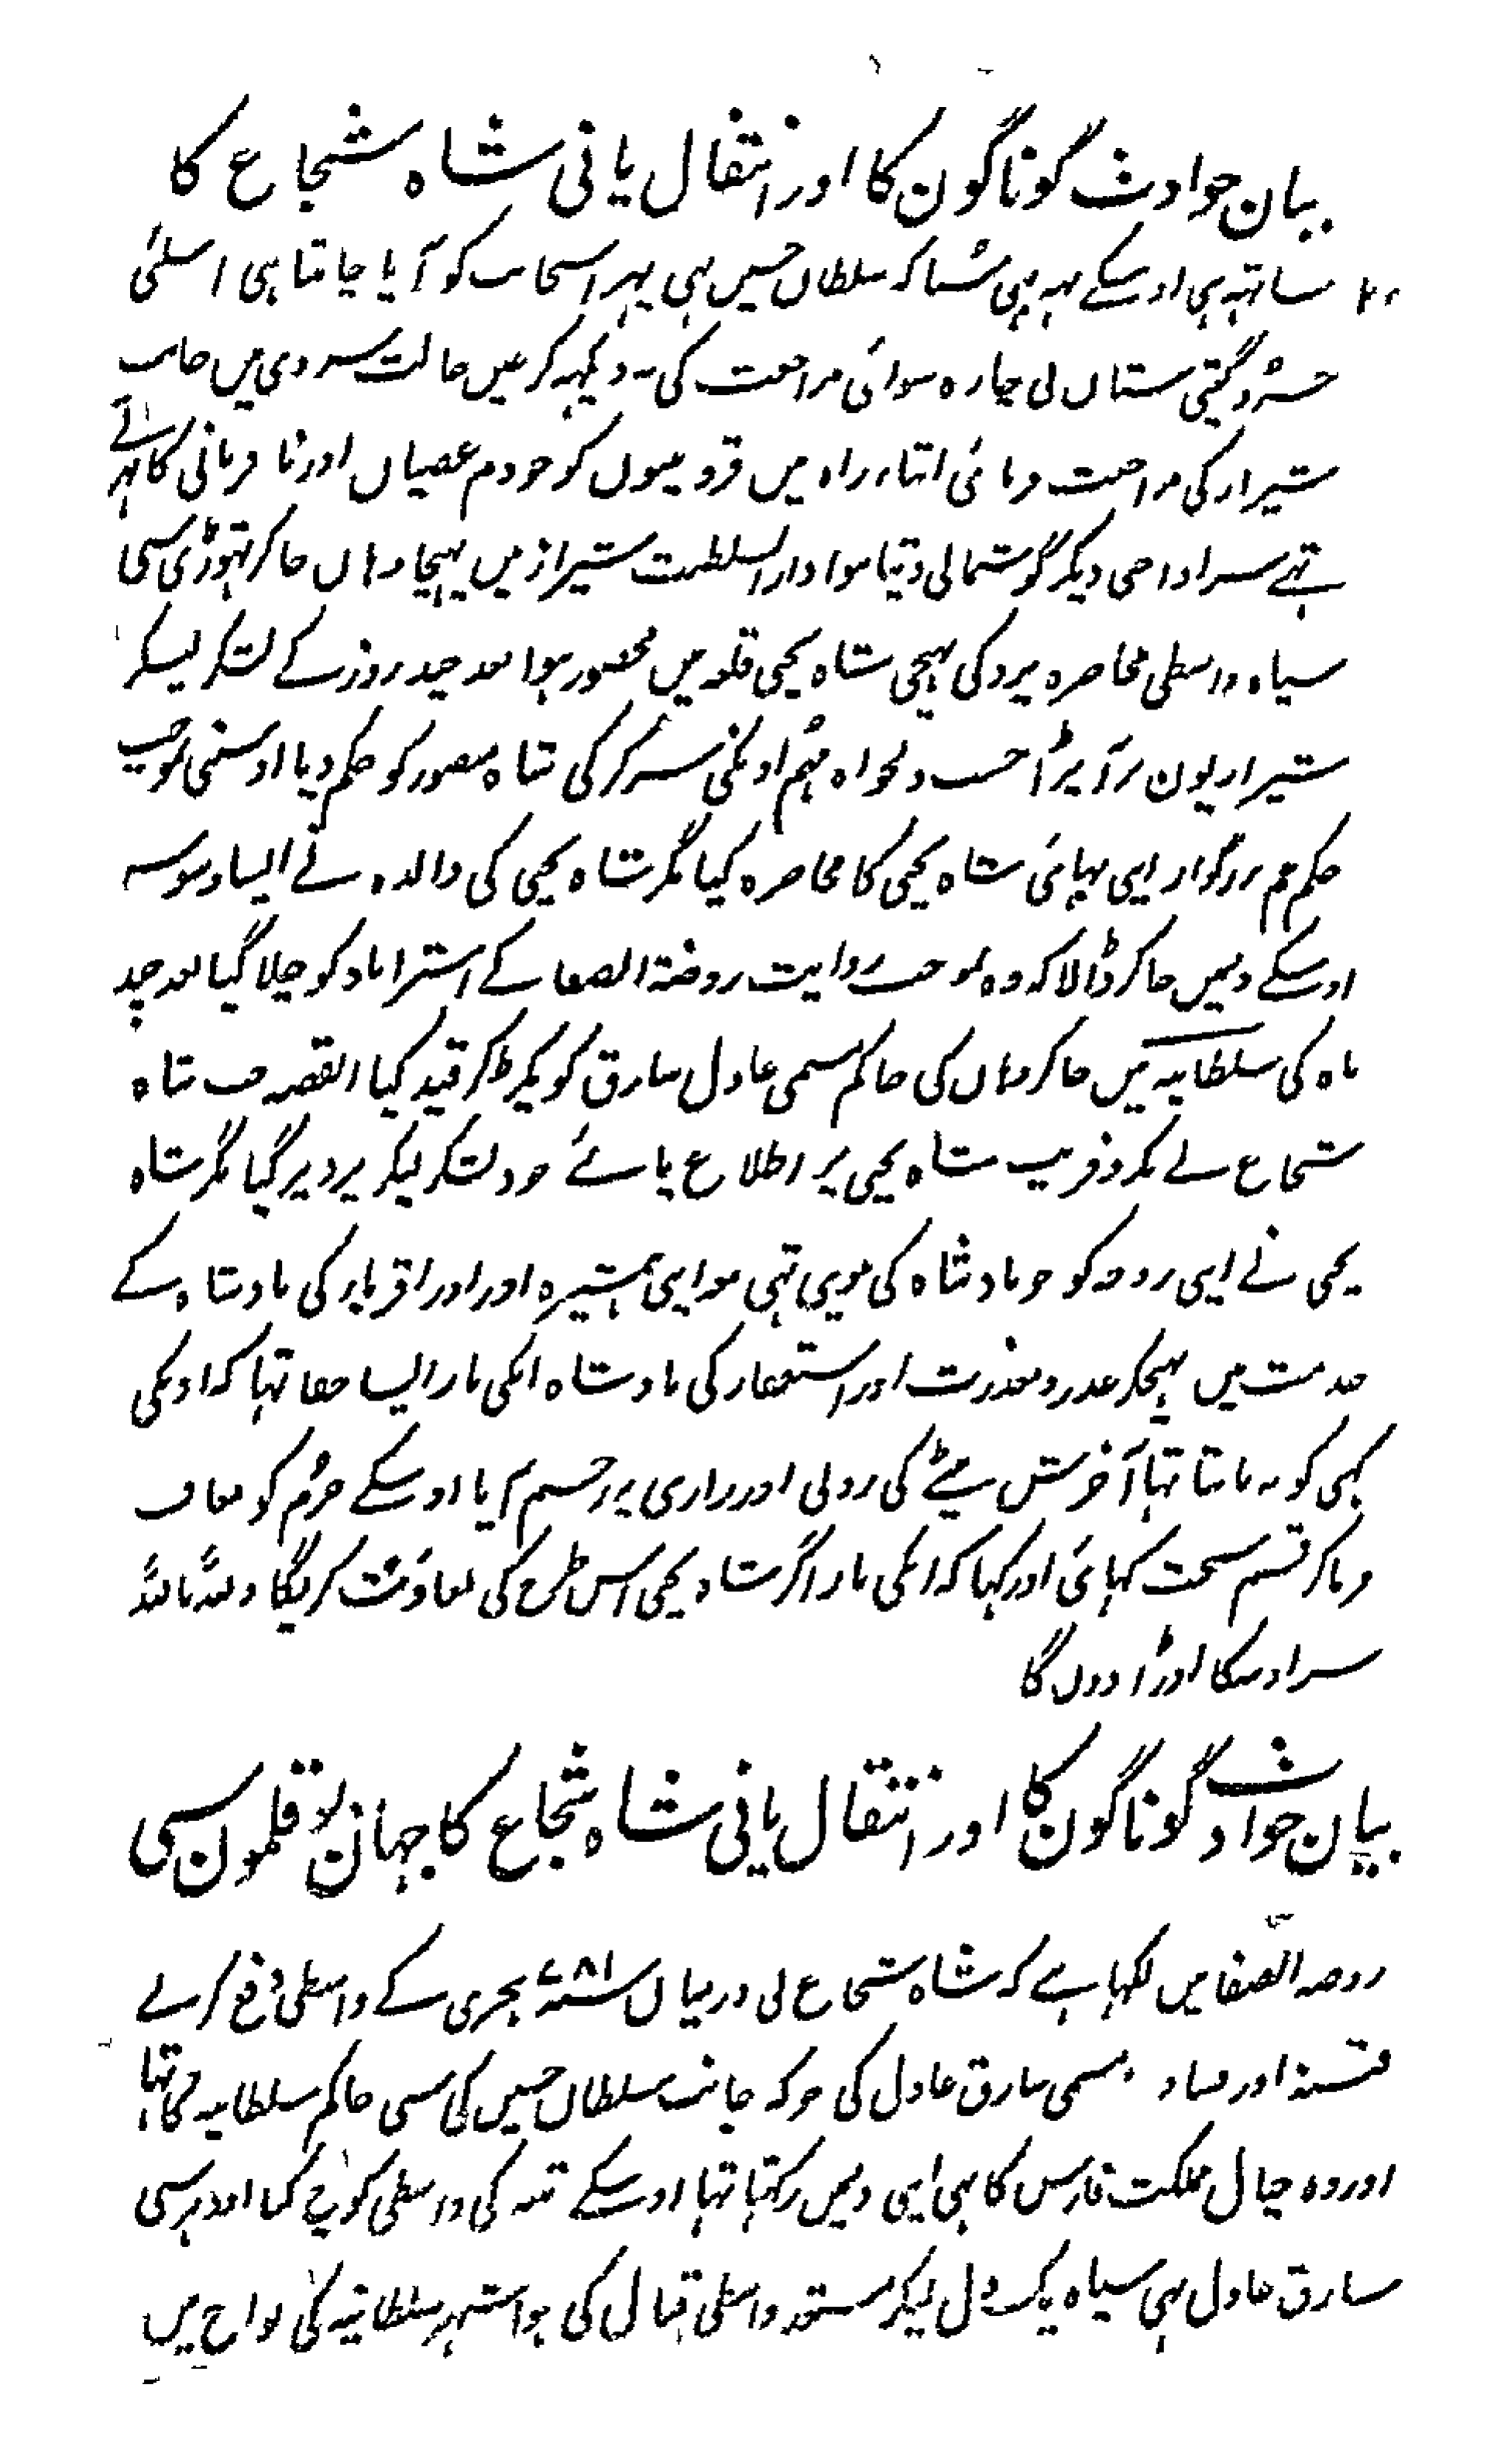 بیان حوادث گوناگون کا اور انتقال پانی شاہ شجاع کا
ساتہہ ہی اوسکے یہہ بہی سُنا کہ سلطان حسین بہی پہر اسجانب کو آیا چاہتا ہی اسلئی
خسرو گیتی ستان نی چارہ سوائی مراجعت کی نہ دیکہہ کر عین حالت سردی میں جانب
شیراز کی مراجعت فرمائی اثناء راہ میں قزوینیون کو جو دم عصیان اور نافرمانی کا بہرتے
تہے سزا واجبی دیکر گوشمالی دیتا ہوا دار السلطنت شیراز میں پہنچا وہان جاکر تہوڑی سی
سپاہ واسطی محاصرہ یزد کی بہیجی شاہ یحیی قلعہ میں محصور ہوا بعد چند روز کے لشکر لیکر
شیرازیون پر آپڑا حسب دلخواہ مہم اونکی سر کر کی شاہ منصور کو حکم دیا اوسنی بموجب
حکم عم بزرگوار اپنی بہائی شاہ یحیی کا محاصرہ کیا مگر شاہ یحیی کی والدہ نے ایسا وسوسہ
اوسکے دلمیں جاکر ڈالا کہ وہ بموجب روایت روضۃ الصفا کے استراباد کو چلا گیا بعد چند
ماہ کی سلطانیہ میں جاکر وہان کی حاکم مسمی عادل سارق کو پکڑ کر قید کیا القصہ جب شاہ
شجاع نے مکر و فریب شاہ یحیی پر اطلاع پائے خود لشکر لیکر یزد پر گیا مگر شاہ
یحیی نے اپنی زوجہ کو جو بادشاہ کی بیٹی تہی معہ اپنی ہمشیرہ اور اور اقربا کی بادشاہ کے
خدمت میں بہیجکر عذر و معذرت اور استغفار کی بادشاہ ابکی بار ایسا خفا تہا کہ اونکی
کہی کو نہ مانتا تہا آخرش بیٹے کی رونی اور زاری پر رحم آیا اوسکے جرم کو معاف
فرما کر قسم سخت کہائی اور کہا کہ ابکی بار اگر شاہ یحیی اس طرح کی بغاوت کریگا واللہ باللہ
سر اوسکا اوڑا دونگا
بیان حوادث گوناگون کا اور انتقال پانی شاہ شجاع کا جہان بوقلمون سی
روضہ الصفا میں لکہا ہے کہ شاہ شجاع نی درمیان سنہ ۷۸۱ ہجری کے واسطی دفع کرنے
فتنہ اور فساد مسمی سارق عادل کی جو کہ جانب سلطان حسین کی سی حاکم سلطانیہ کا تہا
اور وہ خیال مملکت فارس کا بہی اپنی دلمیں رکہتا تہا اوسکے تنبیہ کی واسطی کوچ کیا اودہر سی
سارق عادل بہی سپاہ یکدل لیکر مستعد واسطی قتال کی ہوا شہر سلطانیہ کی نواح میں